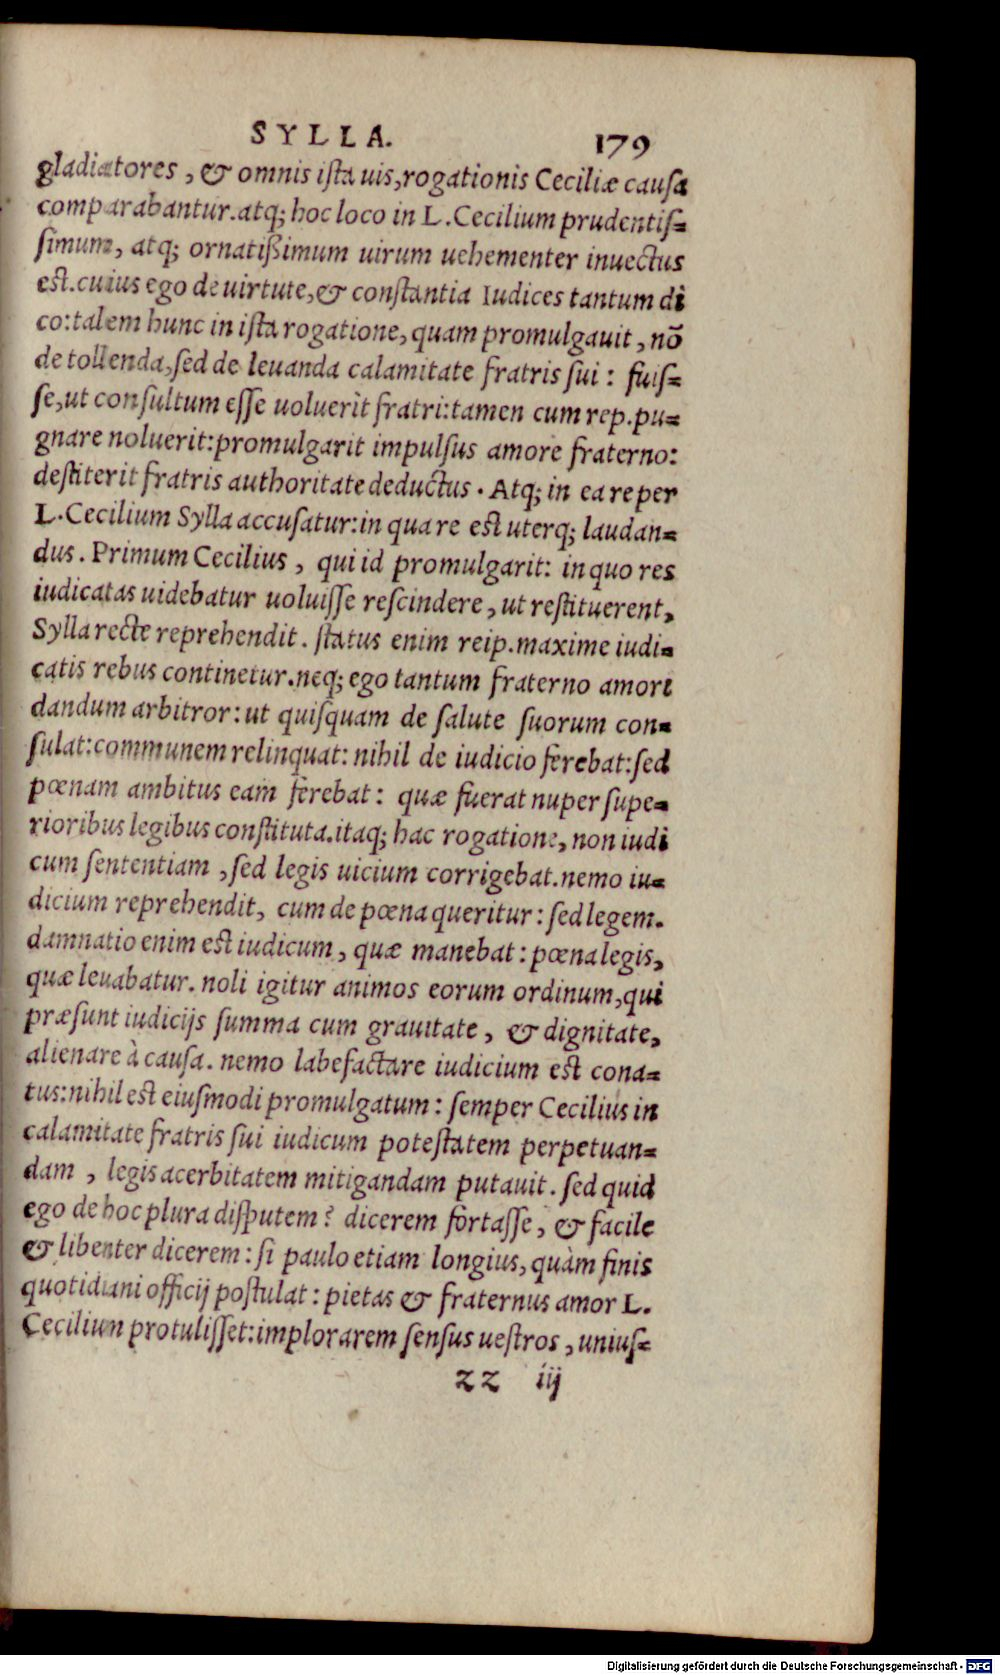 SYLLA. 179
gladiatores, & omnis ista uis, rogationis Ceciliæ causa
comparabantur. atq; hoc loco in L. Cecilium prudentis=
simum, atq; ornatißimum uirum uehementer inuectus
est. cuius ego de uirtute, & constantia Iudices tantum di
co: talem hunc in ista rogatione, quam promulgauit, nõ
de tollenda, sed de leuanda calamitate fratris sui: fuis=
se, ut consultum esse uoluerit fratri: tamen cum rep. pu=
gnare noluerit: promulgarit impulsus amore fraterno:
destiterit fratris authoritate deductus. Atq; in ea re per
L. Cecilium Sylla accusatur: in qua re est uterq; laudan=
dus. Primum Cecilius, qui id promulgarit: in quo res
iudicatas uidebatur uoluisse rescindere, ut restituerent,
Sylla recte reprehendit. status enim reip. maxime iudi=
catis rebus continetur. neq; ego tantum fraterno amori
dandum arbitror: ut quisquam de salute suorum con=
sulat: communem relinquat: nihil de iudicio ferebat: sed
pœnam ambitus eam ferebat: quæ fuerat nuper supe=
rioribus legibus constituta. itaq; hac rogatione, non iudi
cum sententiam, sed legis uicium corrigebat. nemo iu=
dicium reprehendit, cum de pœna queritur: sed legem.
damnatio enim est iudicum, quæ manebat: pœna legis,
quæ leuabatur. noli igitur animos eorum ordinum, qui
præsunt iudicijs summa cum grauitate, & dignitate,
alienare à causa. nemo labefactare iudicium est cona=
tus: nihil est eiusmodi promulgatum: semper Cecilius in
calamitate fratris sui iudicum potestatem perpetuan=
dam, legis acerbitatem mitigandam putauit. sed quid
ego de hoc plura disputem? dicerem fortasse, & facile
& libenter dicerem: si paulo etiam longius, quàm finis
quotidiani officij postulat: pietas & fraternus amor L.
Cecilium protulisset: implorarem sensus uestros, unius=
zz iij
Digitalisierung gefördert durch die Deutsche Forschungsgemeinschaft - DFG